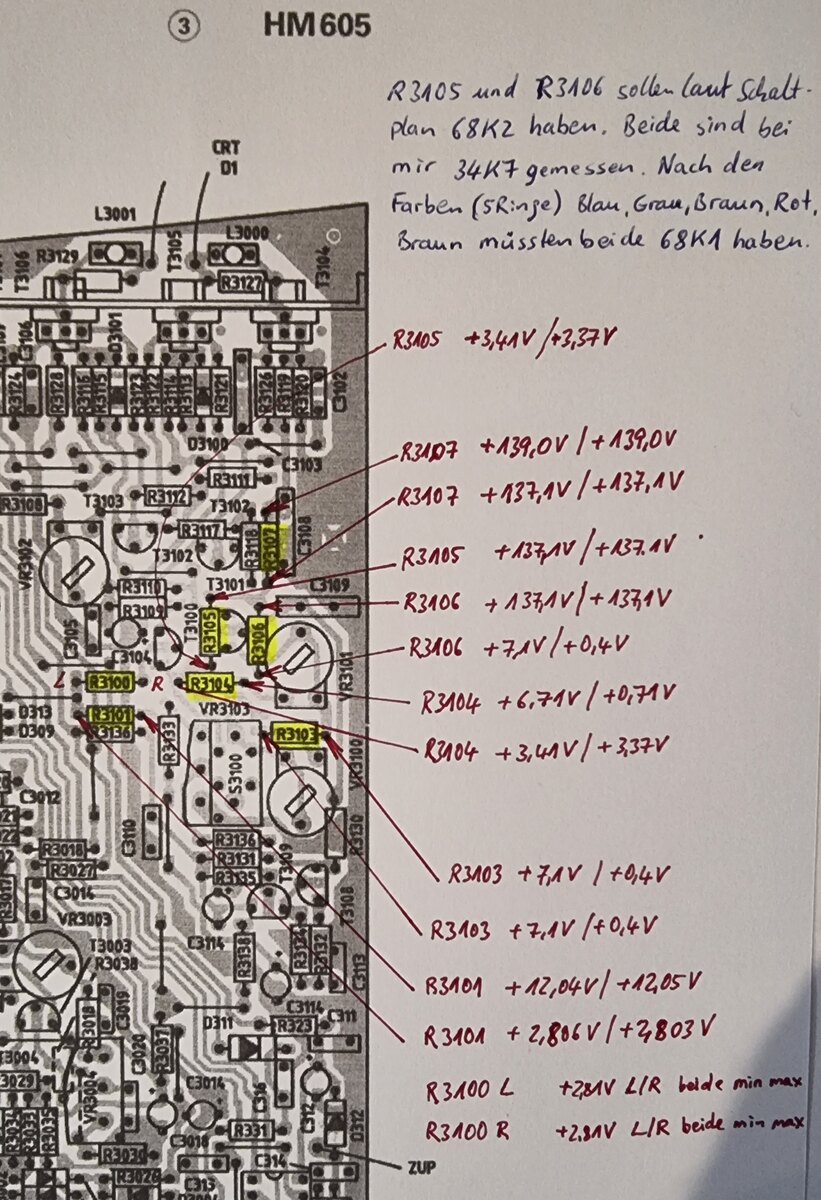 3 HM605
R3105 und R3106 sollen laut Schalt-
plan 68K2 haben. Beide sind bei
mir 34K7 gemessen. Nach den
Farben (5Ringe) Blau, Grau, Braun, Rot,
Braun müssten beide 68K1 haben.
CRT
D1
L3001
L3000
R3129
T3105
T3106
T3104
R3127
D3101
C3106
R3105 +3,41V/+3,37V
R3124
R3128
R3123
R3122
R3113
R3121
R3126
R3119
R3120
C3102
D3100
C3103
R3107 +139,0V/+139,0V
R3111
R3112
R3107 +137,1V/+137,1V
R3108
T3103
T3102
R3117
T3102
R3118
R3107
C3108
VR3102
R3105 +137,1V/+137.1V
T3101
R3110
C3109
R3106 +137,1V/+137,1V
R3109
C3105
T3100
R3105
R3106
C3104
R3106 +7,1V/+0,4V
VR3101
L R3100 R
R3104
R3104 +6,71V/+0,71V
VR3103
D313
R3101
D309
R3136
R3133
R3103
R3104 +3,41V/+3,37V
S3100
VR3100
C3012
C3110
R3130
R3018
R3136
R3131
R3135
T3109
R3027
R3017
C3014
R3103 +7,1V/+0,4V
VR3003
T3108
C3114
R3103 +7,1V/+0,4V
T3003
R3038
R3138
R3132
C3113
R3101 +12,04V/+12,05V
C3019
R3018
C3114
D311
R323
C311
R3101 +2,806V/+2,803V
T3004
C3020
R3037
R3029
VR3004
C3014
C316
C312
D312
R3100 L +2,81V L/R beide min max
C3018
R331
R3100 R +2.81V L/R beide min max
R3035
R3030
C314
ZUP
R3026
C313